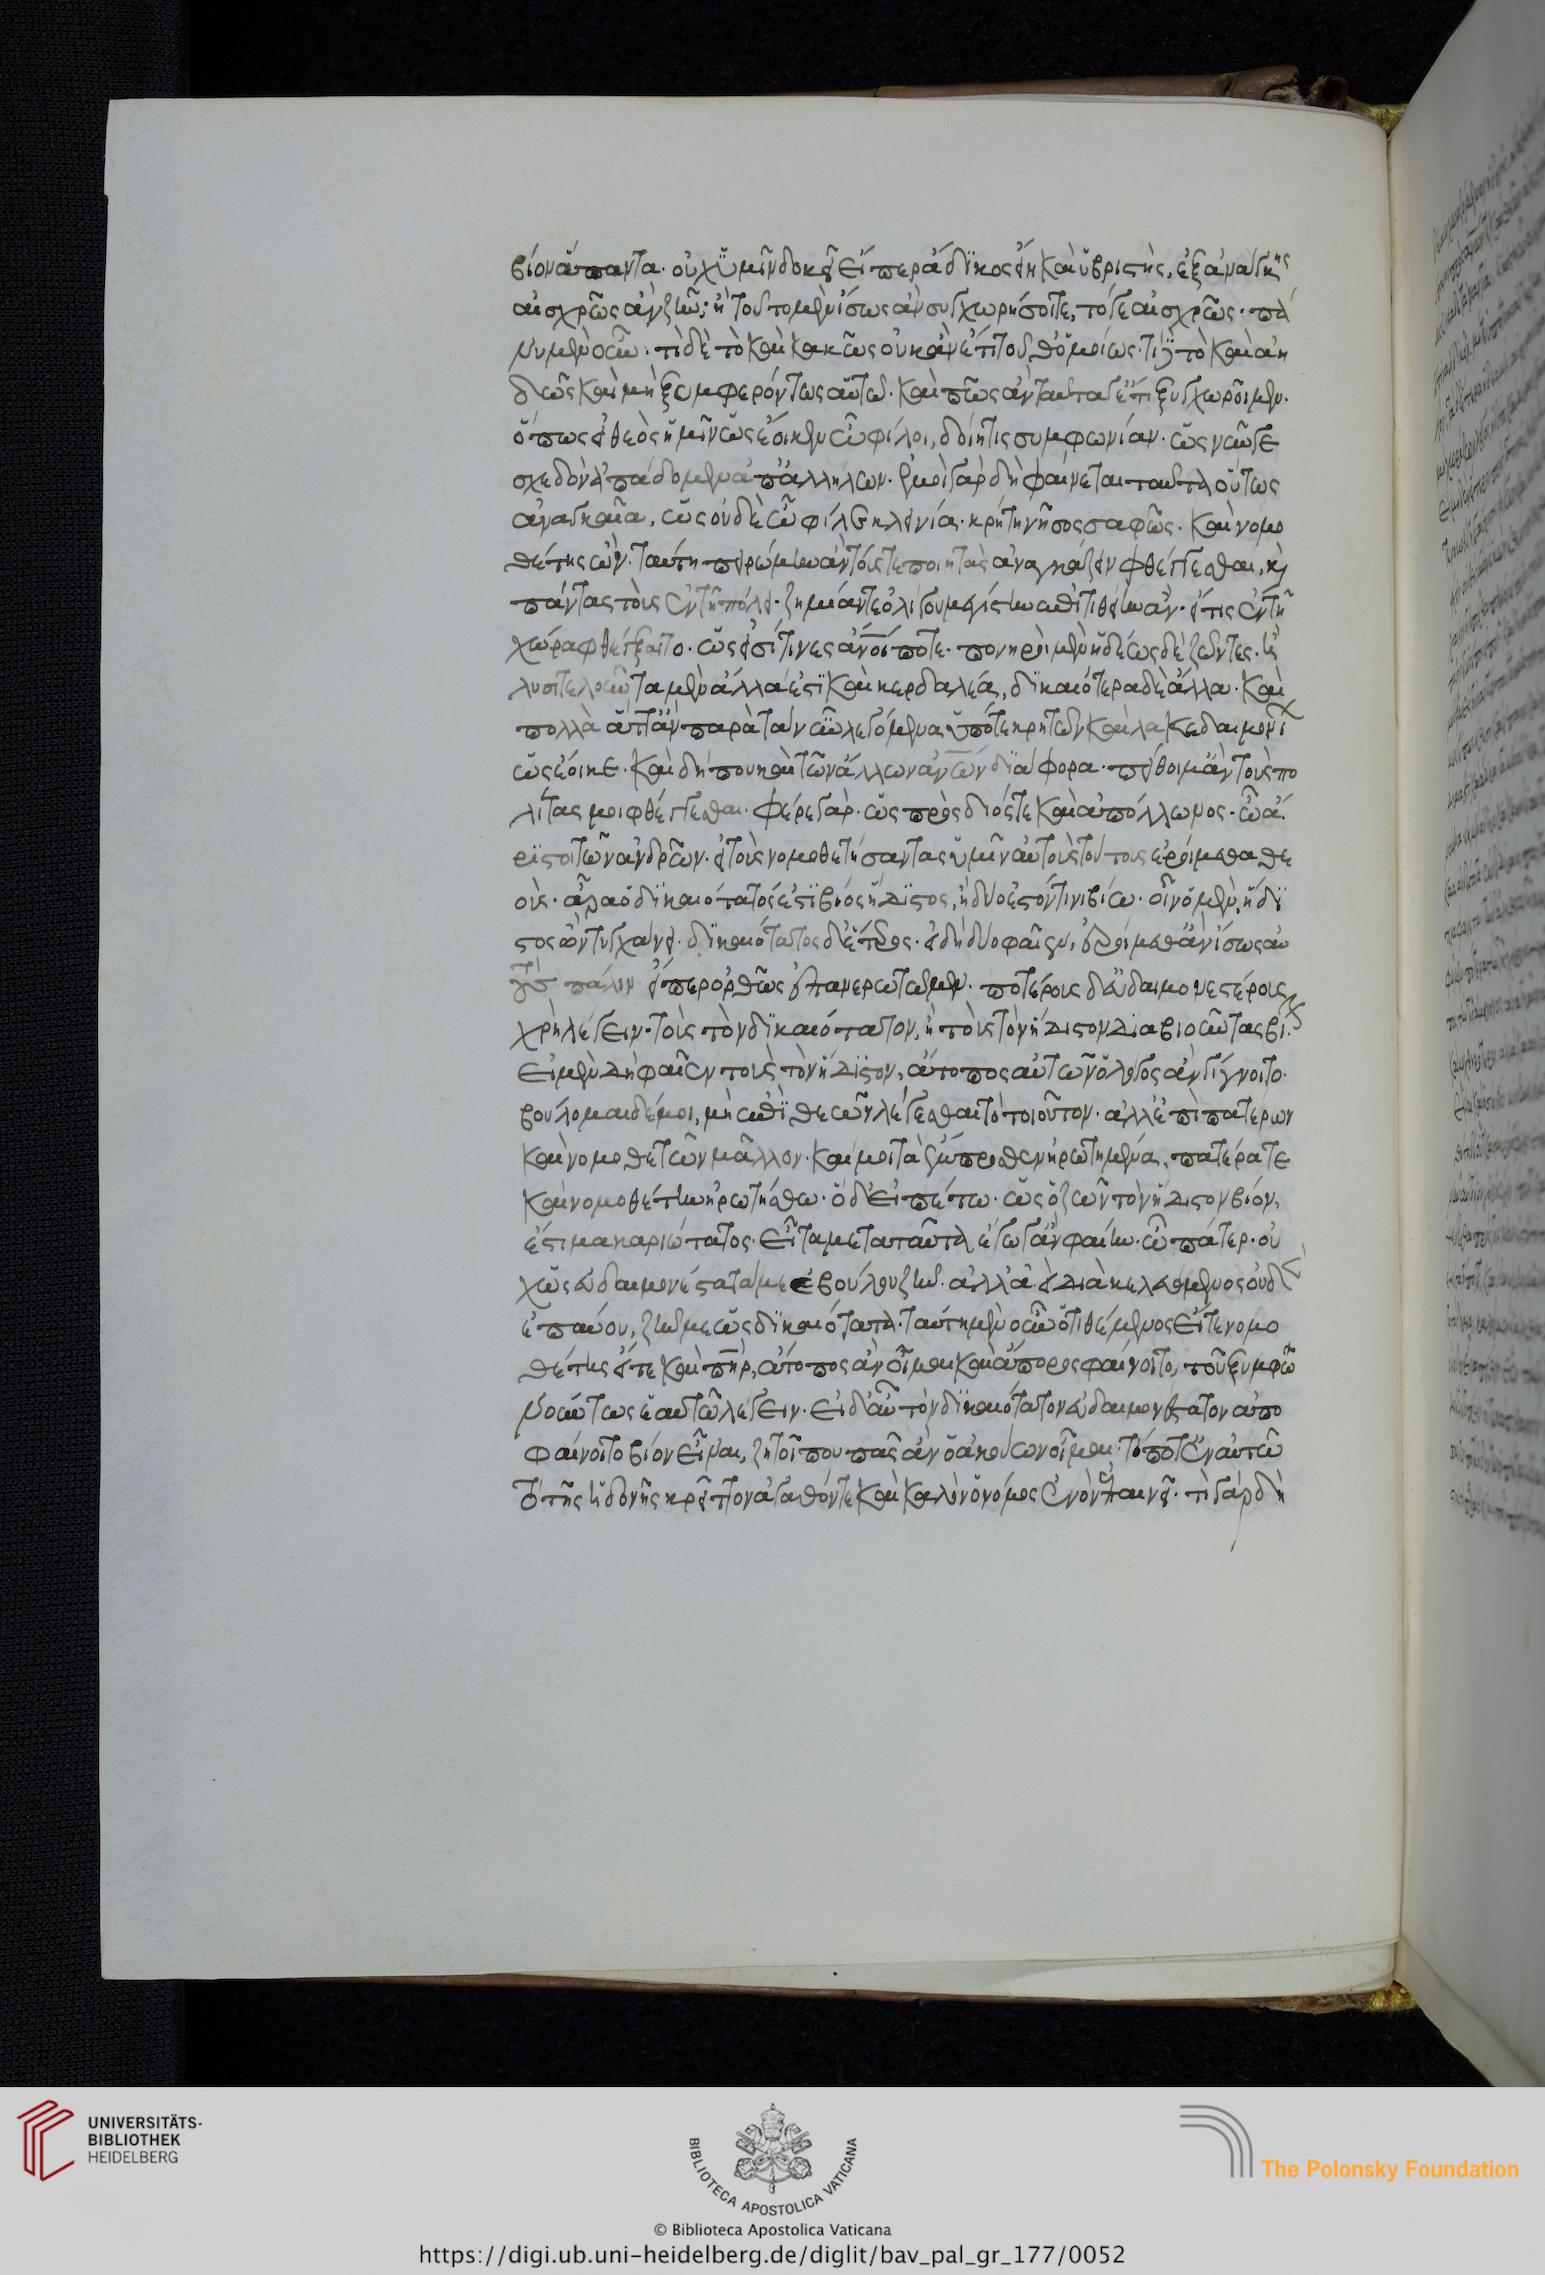 βίον ἅπαντα· οὐχ ὑμῖν δοκεῖ εἴπερ ἄδϊκος εἴη καὶ ὑβριστὴς, ἐξ ἀνάγκης
αἰσχρῶς ἂν ζῆν; ἢ τοῦτο μὲν ἴσως ἂν συγχωρήσοιτε, τό γε αἰσχρῶς· πά
νυ μὲν οὖν· τὶ δὲ τὸ καὶ κακῶς οὐκ ἂν ἔτι τοῦθ ὁμοίως· τί δὲ τὸ καὶ ἀη
δῶς καὶ μὴ ξυμφερόντως αὑτῶ· καὶ πῶς ἂν ταῦτα γ ἔτι ξυγχωροῖμεν·
ὅπως εἰ θεὸς ἡμῖν ὡς ἔοικεν ὦ φίλοι, δοίη τις συμφωνίαν· ὡς νῦν γε
σχεδὸν ἀπάδομεν ἀπ ἀλλήλων· ἐμοὶ γὰρ δὴ φαίνεται ταῦτα οὕτως
ἀναγκαῖα, ὡς οὐδὲ ὦ φίλε κλεινία· κρήτη νῆσος σαφῶς· καὶ νομο
θέτης ὢν· ταύτη πειρώμην ἂν τούς τε ποιητὰς ἀναγκάζειν φθέγγεσθαι, καὶ
πάντας τοὺς ἐν τῆ πόλει· ζημίαν τε ὀλίγου μεγίστην ἐπιτιθείην ἂν· εἴ τις ἐν τῆ
χώρα φθέγξαιτο· ὡς εἰσί τινες ἄνοί ποτε· πονηροὶ μὲν ἡδέως δὲ ζῶντες· ἢ
λυσιτελοῦντα μὲν ἄλλα ἐστϊ καὶ κερδαλέα, δϊκαιότερα δὲ ἄλλα· καὶ
πολλὰ ἄττ ἂν παρὰ τὰ νῦν λεγόμενα ὑπό τε κρητῶν καὶ λακεδαιμονί
ὡς ἔοικε· καὶ δήπου καὶ τῶν ἄλλων ἀνων δϊάφορα· πείθοιμ ἂν τοὺς πο
λίτας μοι φθέγγεσθαι· φέρε γὰρ· ὡς πρὸς διός τε καὶ ἀπόλλωνος· ὦ ἄ
ρϊστοι τῶν ἀνδρῶν· εἰ τοὺς νομοθετήσαντας ὑμῖν αὐτοὺς τούτους ἐροίμεθα θε
οὺς· ἆρα ὁ δϊκαιότατός ἐστϊ βιός ἥδϊστος, ἢ δύο ἐστόν τινι βίω· οἷν ὁ μὲν, ἥδϊ
στος ὢν τυγχάνει· δϊκαιότατος δ ἕτερος· εἰ δὴ δύο φαῖεν, ἐροίμεθ ἂν ἴσως αὐ
τοὺς πάλιν εἴπερ ὀρθῶς ἐπανερωτῶμεν· ποτέρους δ εὐδαιμονεστέρους
χρὴ λέγειν· τοὺς τὸν δϊκαιότατον, ἢ τοὺς τὸν ἥδιστον διαβιοῦντας βί
εἰ μὲν δὴ φαῖεν τοὺς τὸν ἥδϊστον, ἄτοπος αὐτῶν ὁ λόγος ἂν γίγνοιτο·
βούλομαι δέ μοι, μὴ ἐπὶ θεῶν λέγεσθαι τὸ τοιοῦτον· ἀλλ ἐπὶ πατέρων
καὶ νομοθετῶν μᾶλλον· καί μοι τὰ ἔμπροσθεν ἠρωτημένα, πατέρα τε
καὶ νομοθέτην ἠρωτήσθω· ὁ δ εἰπέτω· ὡς ὁ ζῶν τὸν ἥδιστον βίον,
ἔστι μακαριώτατος· εἶτα μετὰ ταῦτα ἔγωγ ἂν φαίην· ὦ πάτερ· οὐ
χ ὡς εὐδαιμονέστατά με ἐβούλου ζῆν· ἀλλ ἀεὶ διακελευόμενος οὐδὲν
ἐπαύου, ζῆν με ὡς δϊκαιότατα· ταύτη μὲν οὖν ὁ τιθέμενος εἴτε νομο
θέτης εἴτε καὶ πηρ, ἄτοπος ἂν οἶμαι καὶ ἄπορος φαίνοιτο, τοῦ ξυμφώ
νούντως ἑαυτῶ λέγειν· εἰ δ αὖ τὸν δϊκαιότατον εὐδαιμονέστατον ἀπο
φαίνοιτο βίον εἶναι, ζητοῖ που πᾶς ἂν ὁ ἀκούων οἶμαι· τί ποτ ἐν αὐτῶ
τὸ τῆς ἡδονῆς κρεῖττον ἀγαθόν τε καὶ καλὸν ὁ νόμος ἐνὸν ἐπαινεῖ· τὶ γὰρ δὴ
UNIVERSITÄTS-
BIBLIOTHEK
HEIDELBERG
BIBLIOTECA APOSTOLICA VATICANA
The Polonsky Foundation
© Biblioteca Apostolica Vaticana
https://digi.ub.uni-heidelberg.de/diglit/bav_pal_gr_177/0052